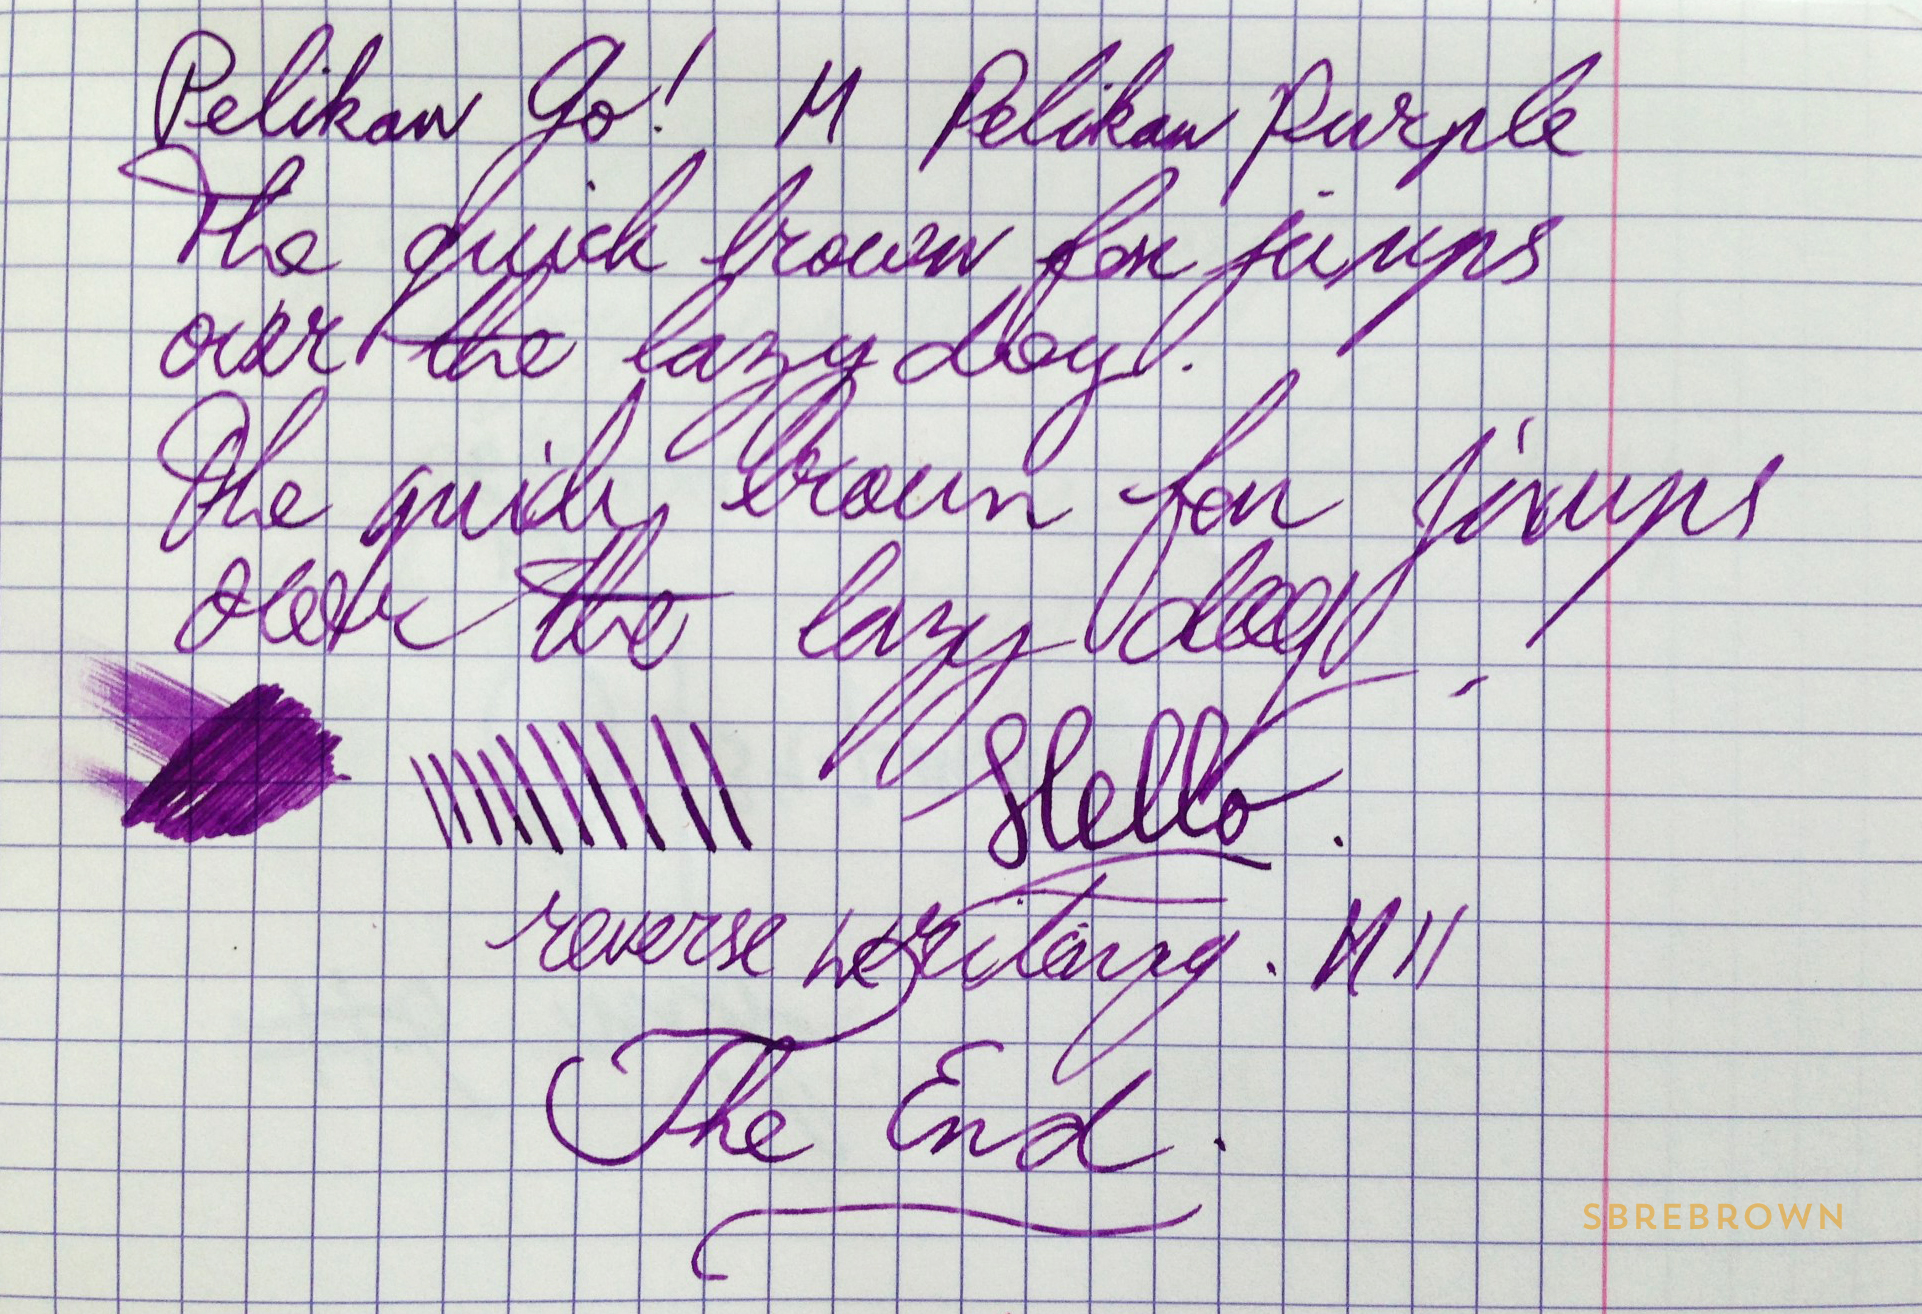 Pelikan Go! M Pelikan Purple
The quick brown fox jumps
over the lazy dog.
The quick brown fox jumps
over the lazy dog.
Hello.
reverse writing. M II
The End.
SBREBROWN